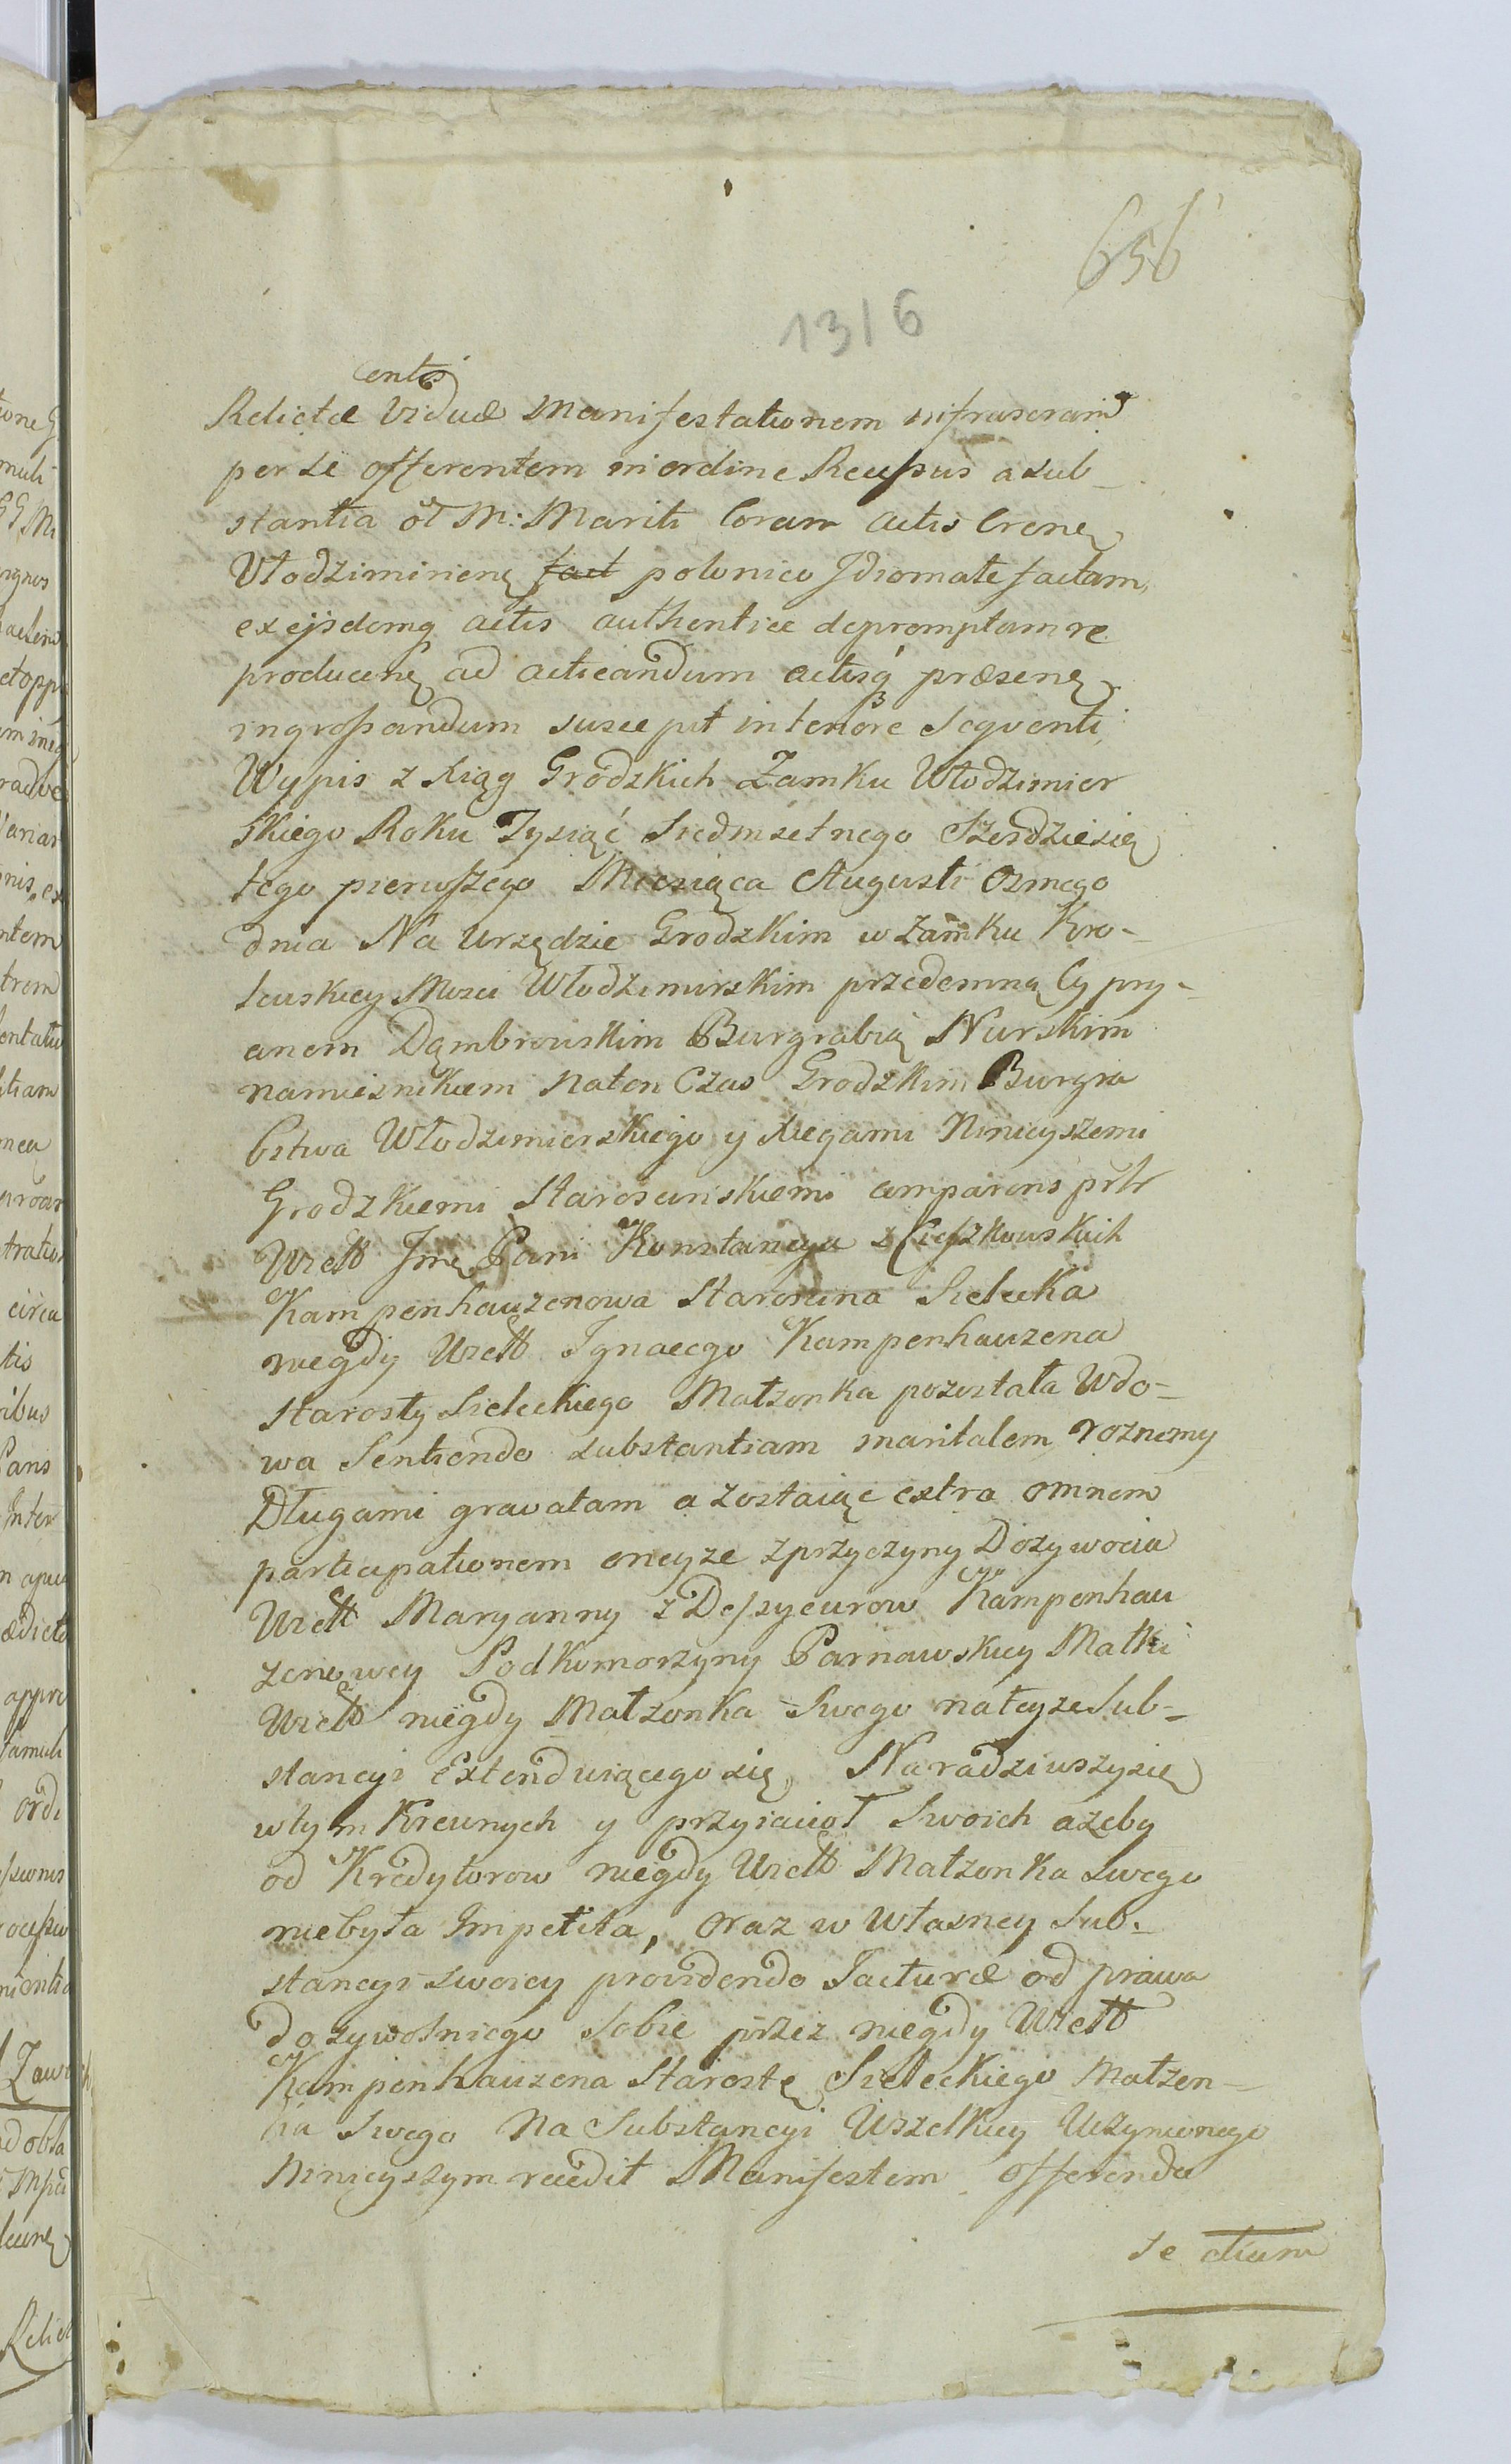 656
1316
centis
Relictæ Viduæ Manifestationem infrascram
per se offerentem in ordine Recessus a sub-
stantia ol M: Mariti Coram Actis Crenę
Vłodzimirienę fact polonico Idiomate factam,
exejsdemq̨ actis authentice depromptam re
producenę ad acticandum actisq̨ præsenę
ingrossandum suscepit in tenore Sequenti
Wypis z Xiąg Grodzkich Zamku Włodzimier
skiego Roku Tysiąć Siedmsetnego Szesdziesię
tego pierwszego Miesiąca Augusti Osmego
dnia Na Urzędzie Grodzkim w Zamku Kro-
lewskiey Mosci Włodzimirskim przedemną Cypry-
anem Dąmbrowskim Burgrabią Nurskim
namiesnikiem naten Czas Grodzkim Burgra
bstwa Włodzimierskiego y Xiegami Ninieyszemi
Grodzkiemi Staroscinskiemi comparens prltr
Wielb Jmę Pani Konstancya z Cieszkowskich
Kampenhauzenowa Staroscina Sielecka
niegdy Wielb Ignacego Kampenhauzena
Starosty Sieleckiego Małzonka pozostała Wdo-
wa Sentiendo substantiam maritalem roznemy
Długami gravatam a zostaiąc extra omnem
participationem oneyze zprzyczyny Dozywocia
Wielb Maryanny z Deszycurow Kampenhau
zenowey Podkomorzyny Parnawskiey Matki
Wielb niegdy Małzonka Swego nateyze Sub-
stancyi Extenduiącego się, Naradziwszy się
wtym Krewnych y przyiacioł Swoich azeby
od Kredytorow niegdy Wielb Małzonka Swego
niebyła Impetita, oraz w Własney Sub-
stancyi swoiey providendo Jacturæ od prawa
dozywotniego Sobie przez niegdy Wielb
Kampenhauzena Starostę Sieleckiego Małzon-
ka Swego Na Substancyi Wszelkiey Uczynionego
Ninieyszym recedit Manifestem offerendo
se etiam